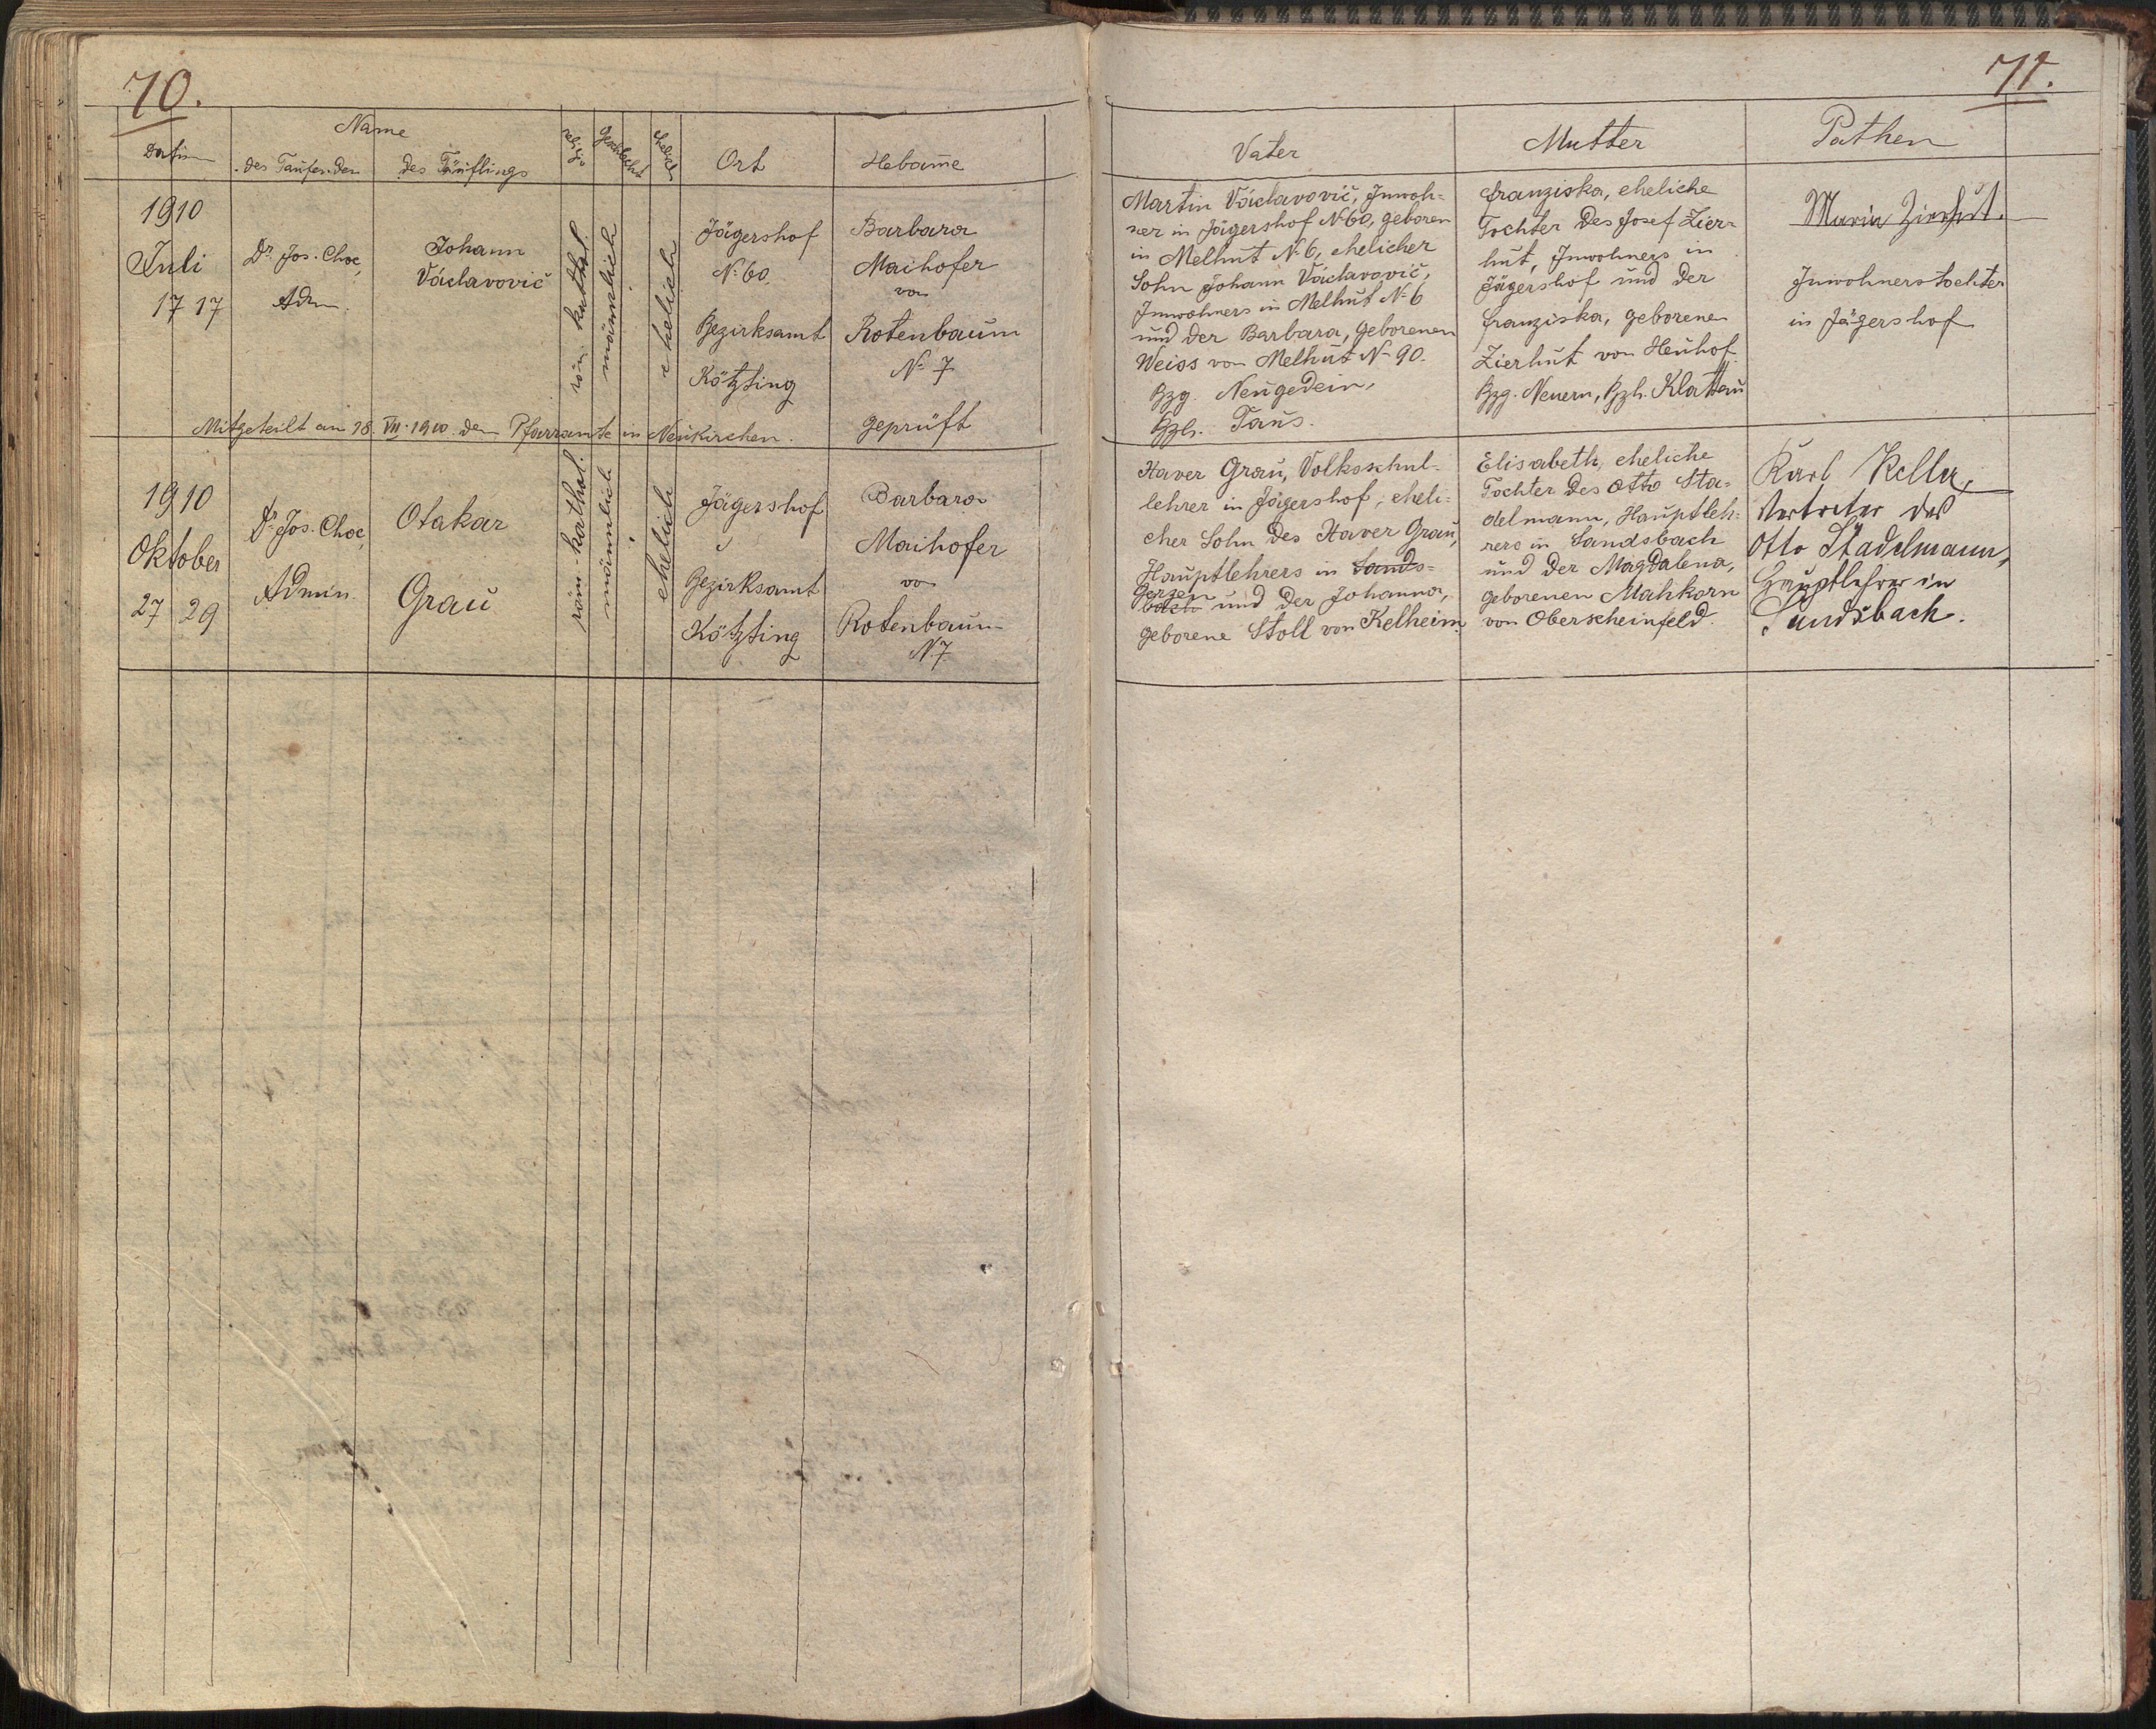 70.
Name
Datum
des Taufenden
des Täuflings
religio
Geschlecht
ehelich
Ort
Hebame
1910
Juli
17 17
Dr. Jos. Choc,
Adm.
Johann
Václavovič
röm. kathol.
männlich
ehelich
Jägershof
No 60.
Bezirksamt
Kötzting
Barbara
Maihofer
von
Rotenbaum
No 7
geprüft
Mitgeteilt am 18. VII. 1910 dem Pfarramte in Neukirchen.
1910
Oktober
27 29
Dr. Jos. Choc,
Admin.
Otakar
Grau
röm.-kathol.
männlich
ehelich
Jägershof
Bezirksamt
Kötzting
Barbara
Maihofer
von
Rotenbaum
N. 7
71.
Vater
Mutter
Pathen
Martin Václavovič, Inwoh-
ner in Jägershof No 60, geboren
in Melhut No 6, ehelicher
Sohn Johann Václavovič,
Inwohners in Melhut No 6
und der Barbara, geborenen
Weiss von Melhut No 90.
Bzg. Neugedein,
Bzh. Taus.
Franziska, eheliche
Tochter des Josef Zier-
hut, Inwohners in
Jägershof und der
Franziska, geborenen
Zierhut von Heuhof
Bzg. Neuern, Bzh. Klattau
Maria Zierhut.
Inwohnerstochter
in Jägershof
Xaver Grau, Volksschul-
lehrer in Jägershof, eheli-
cher Sohn des Xaver Grau,
Hauptlehrers in Sands-
Gerzen
bach und der Johanna,
geborene Stoll von Kelheim.
Elisabeth, eheliche
Tochter des Otto Sta-
delmann, Hauptleh-
rers in Sandsbach
und der Magdalena,
geborenen Mahkorn
von Oberscheinfeld.
Karl Keller,
Vertreter des
Otto Stadelmann,
Hauptlehrer in
Sandsbach.